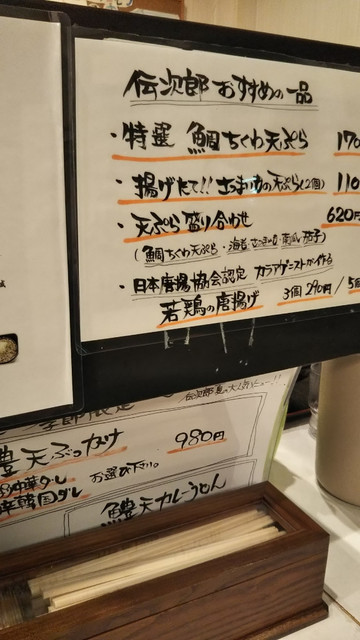 伝次郎おすすめの一品
・特選 鯛ちくわ天ぷら 170
・揚げたて!!さつまいもの天ぷら(2個) 110
・天ぷら盛り合わせ 620円
(鯛ちくわ天ぷら・海老・さつまいも・南瓜・茄子)
・日本唐揚協会認定 カラアゲニストが作る
若鶏の唐揚げ 3個290円/5個
伝次郎 夏の大人気メニュー!!
季節限定
鱧天ぶっかけ 980円
お選び下さい。
韓国ダレ
鱧天カレーうどん